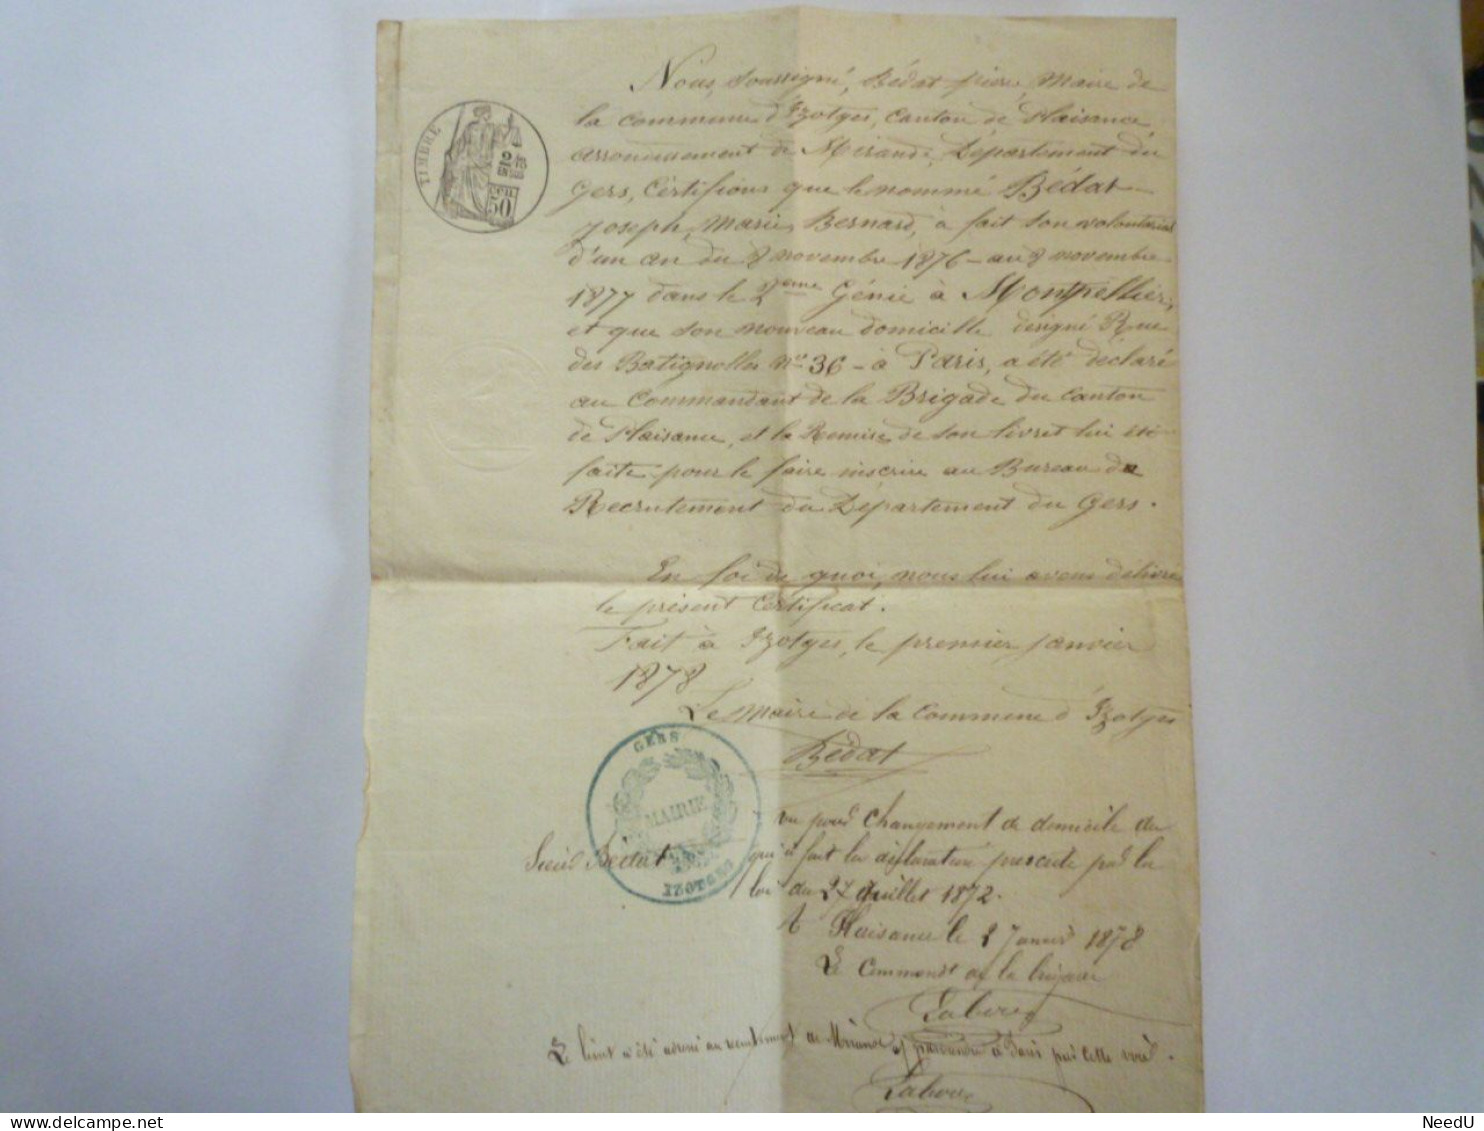 Nous, soussigné, Bédat pierre, Maire de
la commune d'Izotges, Canton de Plaisance
arrondissement de Mirande, Département du
Gers, Certifions que le nommé Bédat
Joseph, Marie, Bernard, à fait son volontariat
d'un an du 8 novembre 1876 - au 8 novembre
1877 dans le 2ème Génie à Montpellier,
et que son nouveau domicille designé Rue
des Batignolles No 36 - à Paris, a été déclaré
au Commandant de la Brigade du Canton
de Plaisance, et la Remise de son livret lui été
faite pour le faire inscrire au Bureau du
Recrutement du Département du Gers.
En foi de quoi, nous lui avons délivré
le présent Certificat.
Fait à Izotges, le premier janvier
1878
Le Maire de la Commune d'Izotges
Bédat
vu pour Changement de domicile du
Sieur Bédat qui a fait la déclaration prescrite par la
loi du 27 Juillet 1872.
A Plaisance le 2 Janvier 1878
Le Command de la brigade
Le livret a été adressé au recrutement de Mirande par cette voie.
TIMBRE
2/10
EN SUS
50
GERS
MAIRIE
IZOTGES
NeedU